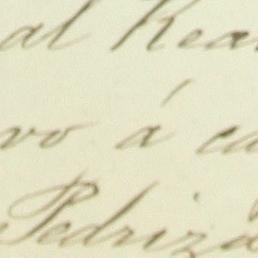 al Rea
vo á ca
Pedriza